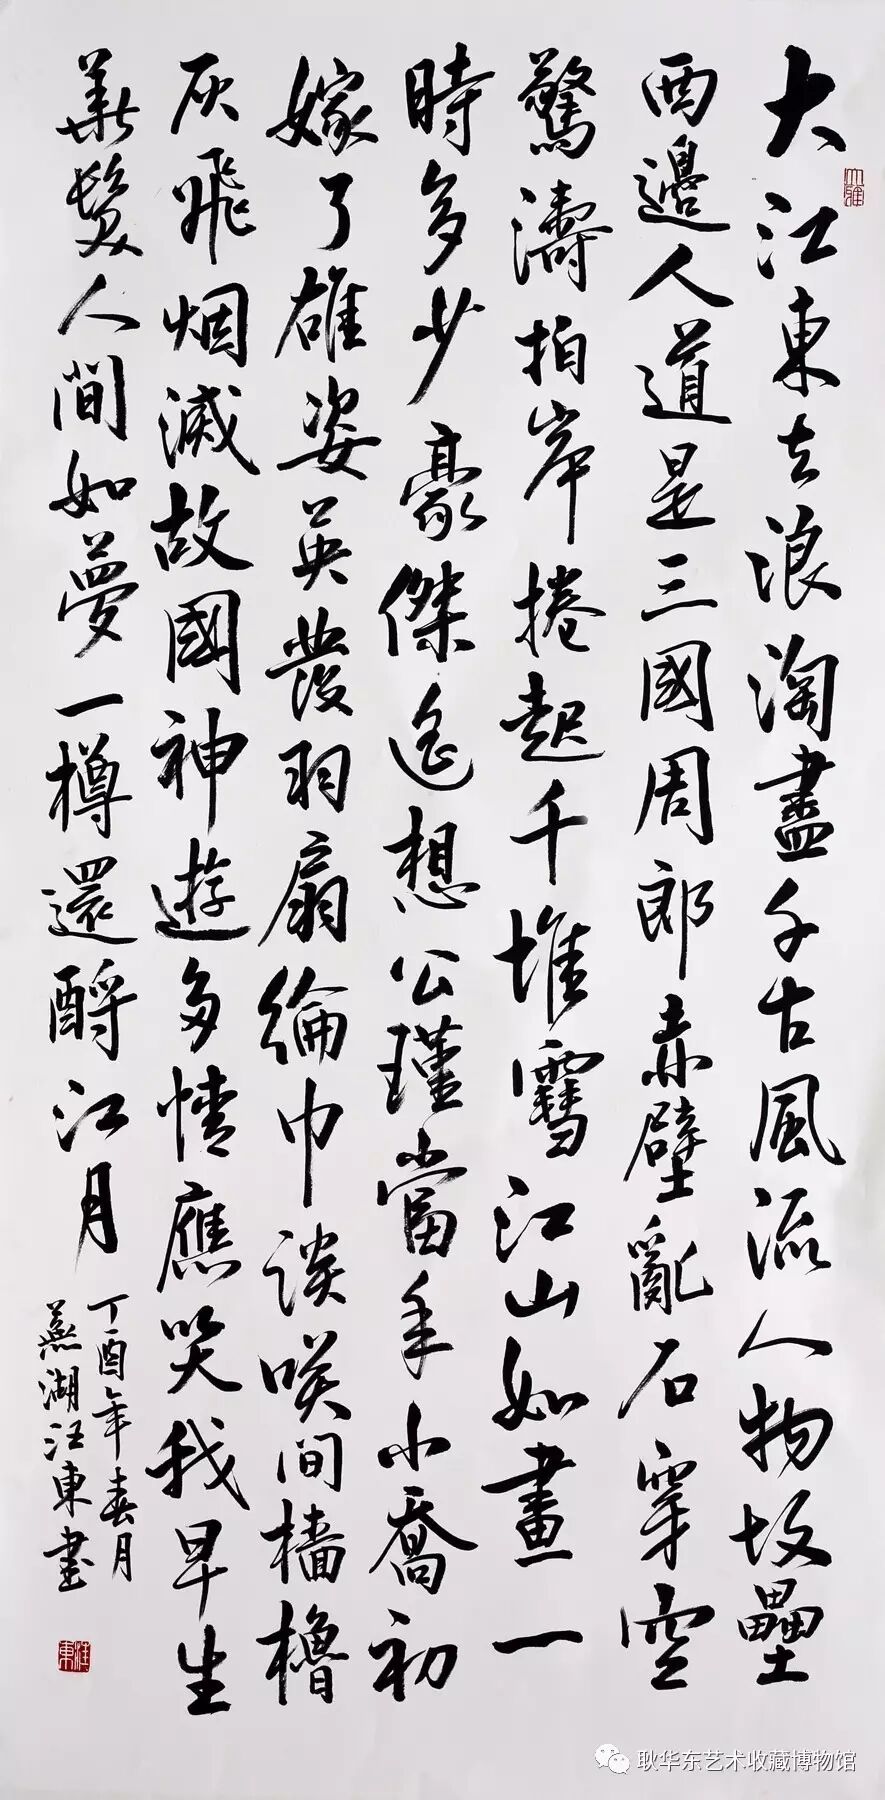 大江東去浪淘盡千古風流人物故壘
西邊人道是三國周郎赤壁亂石穿空
驚濤拍岸捲起千堆雪江山如畫一
時多少豪傑遙想公瑾當年小喬初
嫁了雄姿英發羽扇綸巾談笑間檣櫓
灰飛烟滅故國神遊多情應笑我早生
華髮人間如夢一樽還酹江月
丁酉年春月
蕪湖汪東書
大雅
汪東
耿华东艺术收藏博物馆